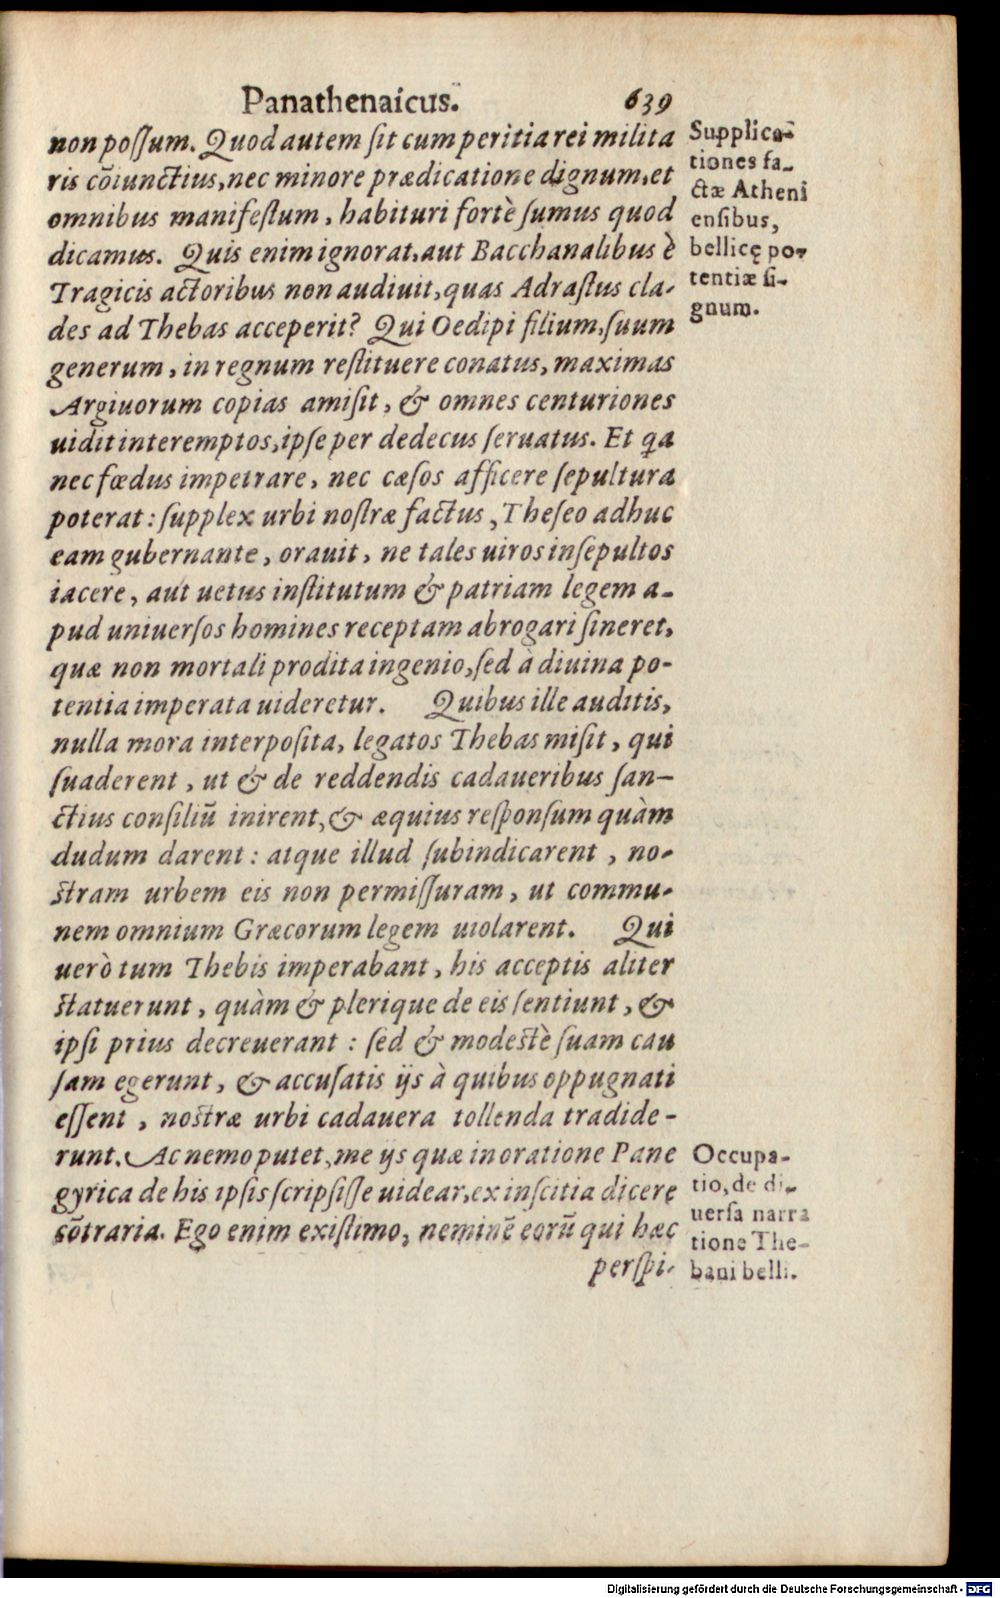 Panathenaicus. 639
non poſſum. Quod autem ſit cum peritia rei milita
ris cōiunctius, nec minore prædicatione dignum, et
omnibus manifeſtum, habituri fortè ſumus quod
dicamus. Quis enim ignorat, aut Bacchanalibus è
Tragicis actoribus non audiuit, quas Adraſtus cla-
des ad Thebas acceperit? Qui Oedipi filium, ſuum
generum, in regnum reſtituere conatus, maximas
Argiuorum copias amiſit, & omnes centuriones
uidit interemptos, ipſe per dedecus ſeruatus. Et qa
nec fœdus impetrare, nec cæſos afficere ſepultura
poterat: ſupplex urbi noſtræ factus, Theſeo adhuc
eam gubernante, orauit, ne tales uiros inſepultos
iacere, aut uetus inſtitutum & patriam legem a-
pud uniuerſos homines receptam abrogari ſineret,
quæ non mortali prodita ingenio, ſed à diuina po-
tentia imperata uideretur. Quibus ille auditis,
nulla mora interpoſita, legatos Thebas miſit, qui
ſuaderent, ut & de reddendis cadaueribus ſan-
ctius conſiliū inirent, & æquius reſponſum quàm
dudum darent: atque illud ſubindicarent, no-
ſtram urbem eis non permiſſuram, ut commu-
nem omnium Græcorum legem uiolarent. Qui
uerò tum Thebis imperabant, his acceptis aliter
ſtatuerunt, quàm & plerique de eis ſentiunt, &
ipſi prius decreuerant: ſed & modeſtè ſuam cau
ſam egerunt, & accuſatis ijs à quibus oppugnati
eſſent, noſtræ urbi cadauera tollenda tradide-
runt. Ac nemo putet, me ijs quæ in oratione Pane
gyrica de his ipſis ſcripſiſſe uidear, ex inſcitia dicere
cōtraria. Ego enim exiſtimo, neminē eorū qui hæc
perſpi-
Supplica-
tiones fa-
ctæ Atheni
enſibus,
bellicę po-
tentiæ ſi-
gnum.
Occupa-
tio, de di-
uerſa narra
tione The-
bani belli.
Digitalisierung gefördert durch die Deutsche Forschungsgemeinschaft - DFG